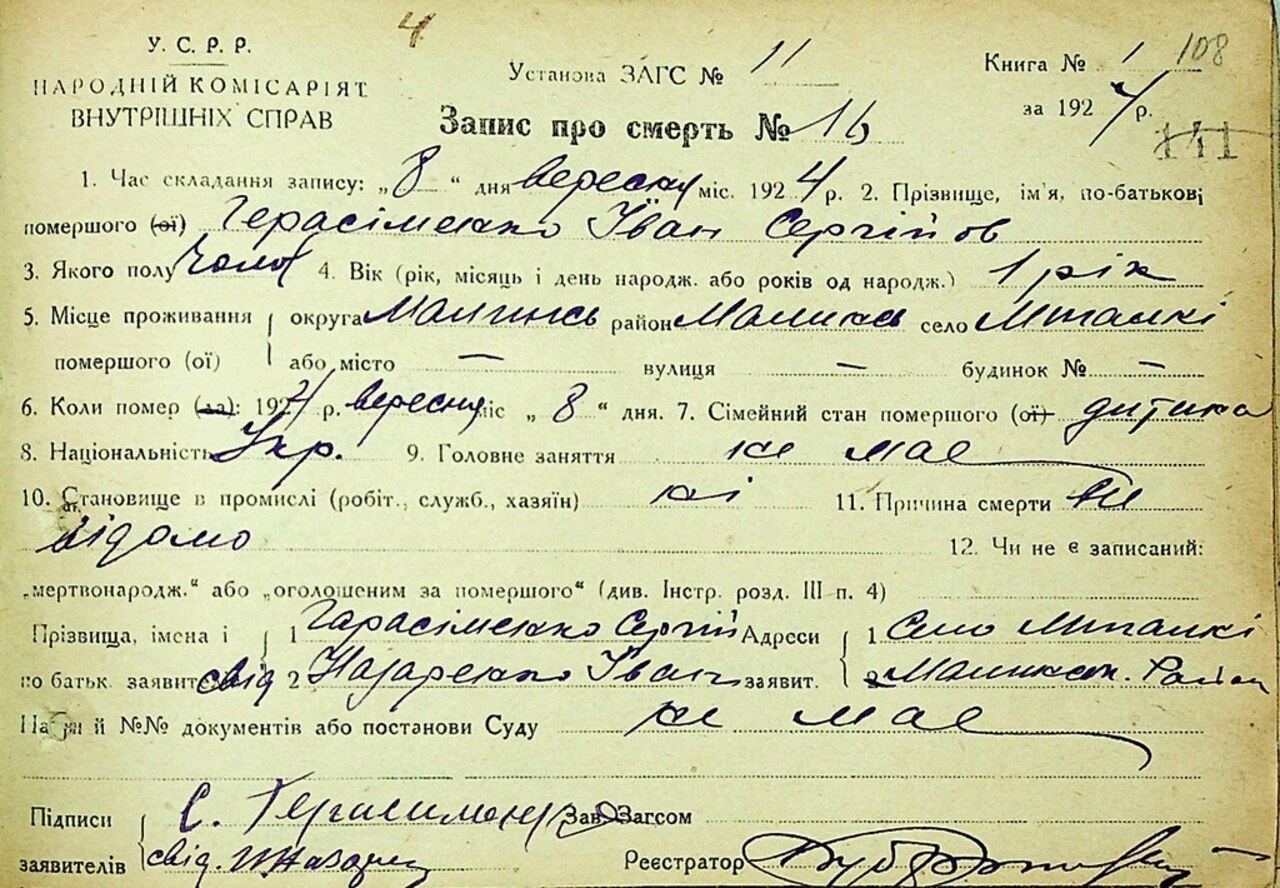 4
У. С. Р. Р.
НАРОДНІЙ КОМІСАРІЯТ
ВНУТРІШНІХ СПРАВ
Установа ЗАГС № 11
Книга № 1 108
за 1924 р.
141
Запис про смерть № 16
1. Час складання запису: „8“ дня вересня міс. 1924 р. 2. Прізвище, ім'я, по-батькові
помершого (ої) Герасіменко Іван Сергійов
3. Якого полу чолов 4. Вік (рік, місяць і день народж. або років од народж.) 1 рік
5. Місце проживання округа Малинсь район Малинсь село
помершого (ої) або місто — вулиця — будинок № —
6. Коли помер (ла): 1924 р. вересня міс „8“ дня. 7. Сімейний стан помершого (ої) дитина
8. Національність Укр. 9. Головне заняття не має
10. Становище в промислі (робіт., служб., хазяїн) ні 11. Причина смерти не
відомо 12. Чи не є записаний:
„мертвонародж.“ або „оголошеним за помершого“ (див. Інстр. розд. III п. 4)
Прізвища, імена і 1 Гарасіменко Сергій Адреси 1 Село
по батьк. заявит свід 2 Назаренко Іван заявит. 2 Малинськ. Район
Назви й №№ документів або постанови Суду не має
Підписи С. Герасименко Зав Загсом
заявителів свід. Реєстратор